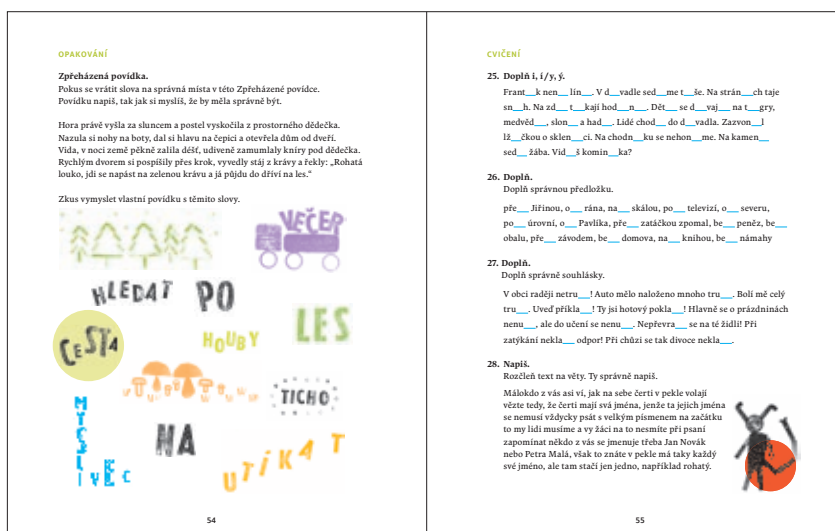 OPAKOVÁNÍ
Zpřeházená povídka.
Pokus se vrátit slova na správná místa v této Zpřeházené povídce.
Povídku napiš, tak jak si myslíš, že by měla správně být.
Hora právě vyšla za sluncem a postel vyskočila z prostorného dědečka.
Nazula si nohy na boty, dal si hlavu na čepici a otevřela dům od dveří.
Vida, v noci země pěkně zalila déšť, udiveně zamumlaly kníry pod dědečka.
Rychlým dvorem si pospíšily přes krok, vyvedly stáj z krávy a řekly: „Rohatá
louko, jdi se napást na zelenou krávu a já půjdu do dříví na les.“
Zkus vymyslet vlastní povídku s těmito slovy.
VEČER
HLEDAT PO
CESTA
HOUBY
LES
TICHO
MYSLIVEC
NA
UTÍKAT
54
CVIČENÍ
25. Doplň i, í/y, ý.
Frant__k nen__ lín__. V d__vadle sed__me t__še. Na strán__ch taje
sn__h. Na zd__ t__kají hod__n__. Dět__ se d__vaj__ na t__gry,
medvěd__, slon__ a had__. Lidé chod__ do d__vadla. Zazvon__l
lž__čkou o sklen__ci. Na chodn__ku se nehon__me. Na kamen__
sed__ žába. Vid__š komin__ka?
26. Doplň.
Doplň správnou předložku.
pře__ Jiřinou, o__ rána, na__ skálou, po__ televizí, o__ severu,
po__ úrovní, o__ Pavlíka, pře__ zatáčkou zpomal, be__ peněz, be__
obalu, pře__ závodem, be__ domova, na__ knihou, be__ námahy
27. Doplň.
Doplň správně souhlásky.
V obci raději netru__! Auto mělo naloženo mnoho tru__. Bolí mě celý
tru__. Uveď příkla__! Ty jsi hotový pokla__! Hlavně se o prázdninách
nenu__, ale do učení se nenu__. Nepřevra__ se na té židli! Při
zatýkání nekla__ odpor! Při chůzi se tak divoce nekla__.
28. Napiš.
Rozčleň text na věty. Ty správně napiš.
Málokdo z vás asi ví, jak na sebe čerti v pekle volají
vězte tedy, že čerti mají svá jména, jenže ta jejich jména
se nemusí vždycky psát s velkým písmenem na začátku
to my lidi musíme a vy žáci na to nesmíte při psaní
zapomínat někdo z vás se jmenuje třeba Jan Novák
nebo Petra Malá, však to znáte v pekle má taky každý
své jméno, ale tam stačí jen jedno, například rohatý.
55